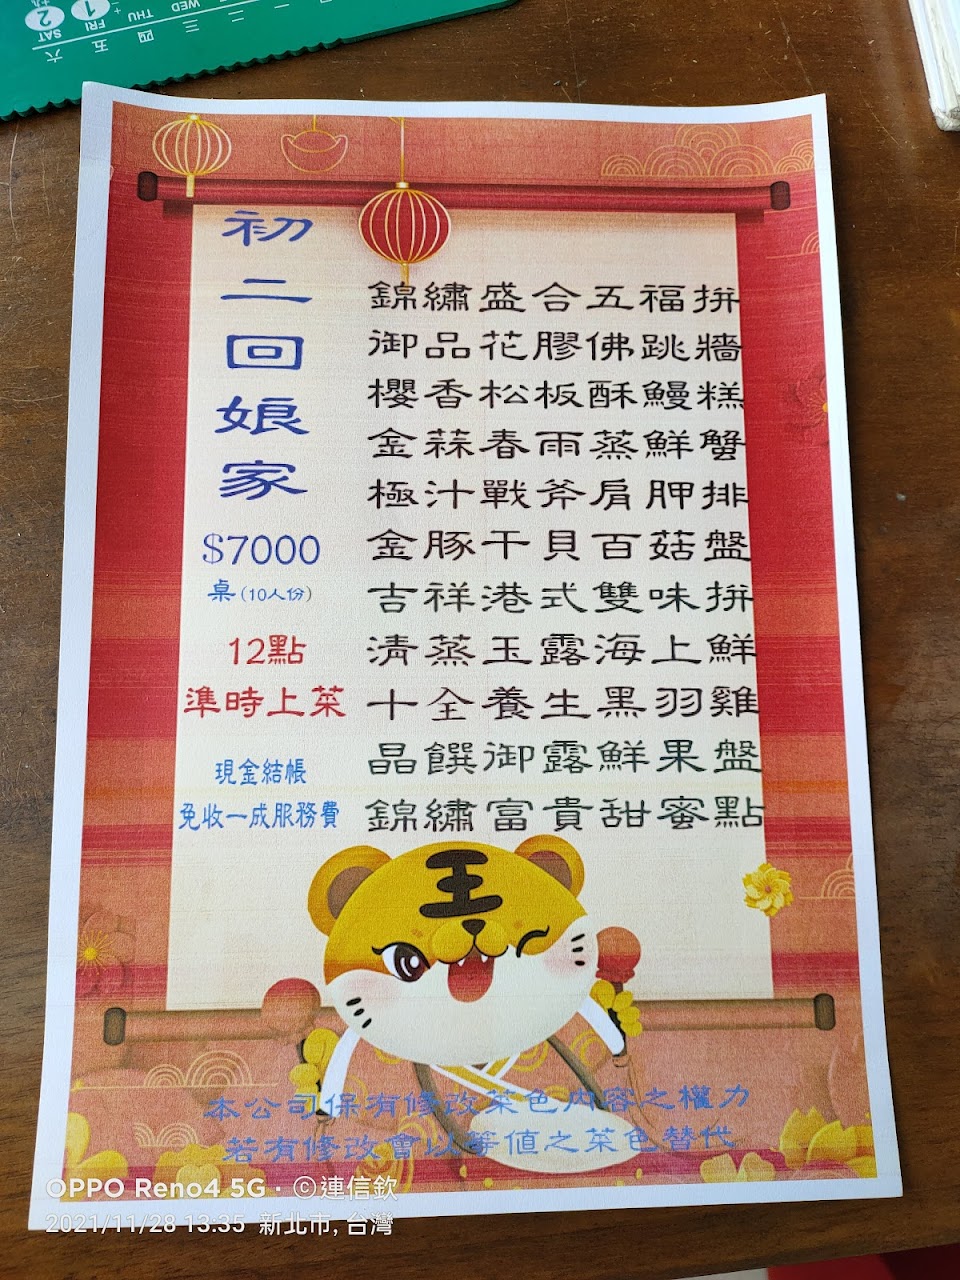 六 五 四 三 二 一
SAT FRI THU WED
2 1
初二回娘家
$7000
桌(10人份)
12點
準時上菜
現金結帳
免收一成服務費
錦繡盛合五福拼
御品花膠佛跳牆
櫻香松板酥鰻糕
金蒜春雨蒸鮮蟹
極汁戰斧肩胛排
金豚干貝百菇盤
吉祥港式雙味拼
清蒸玉露海上鮮
十全養生黑羽雞
晶饌御露鮮果盤
錦繡富貴甜蜜點
王
本公司保有修改菜色內容之權力
若有修改會以等值之菜色替代
OPPO Reno4 5G · ©連信欽
2021/11/28 13:35 新北市, 台灣